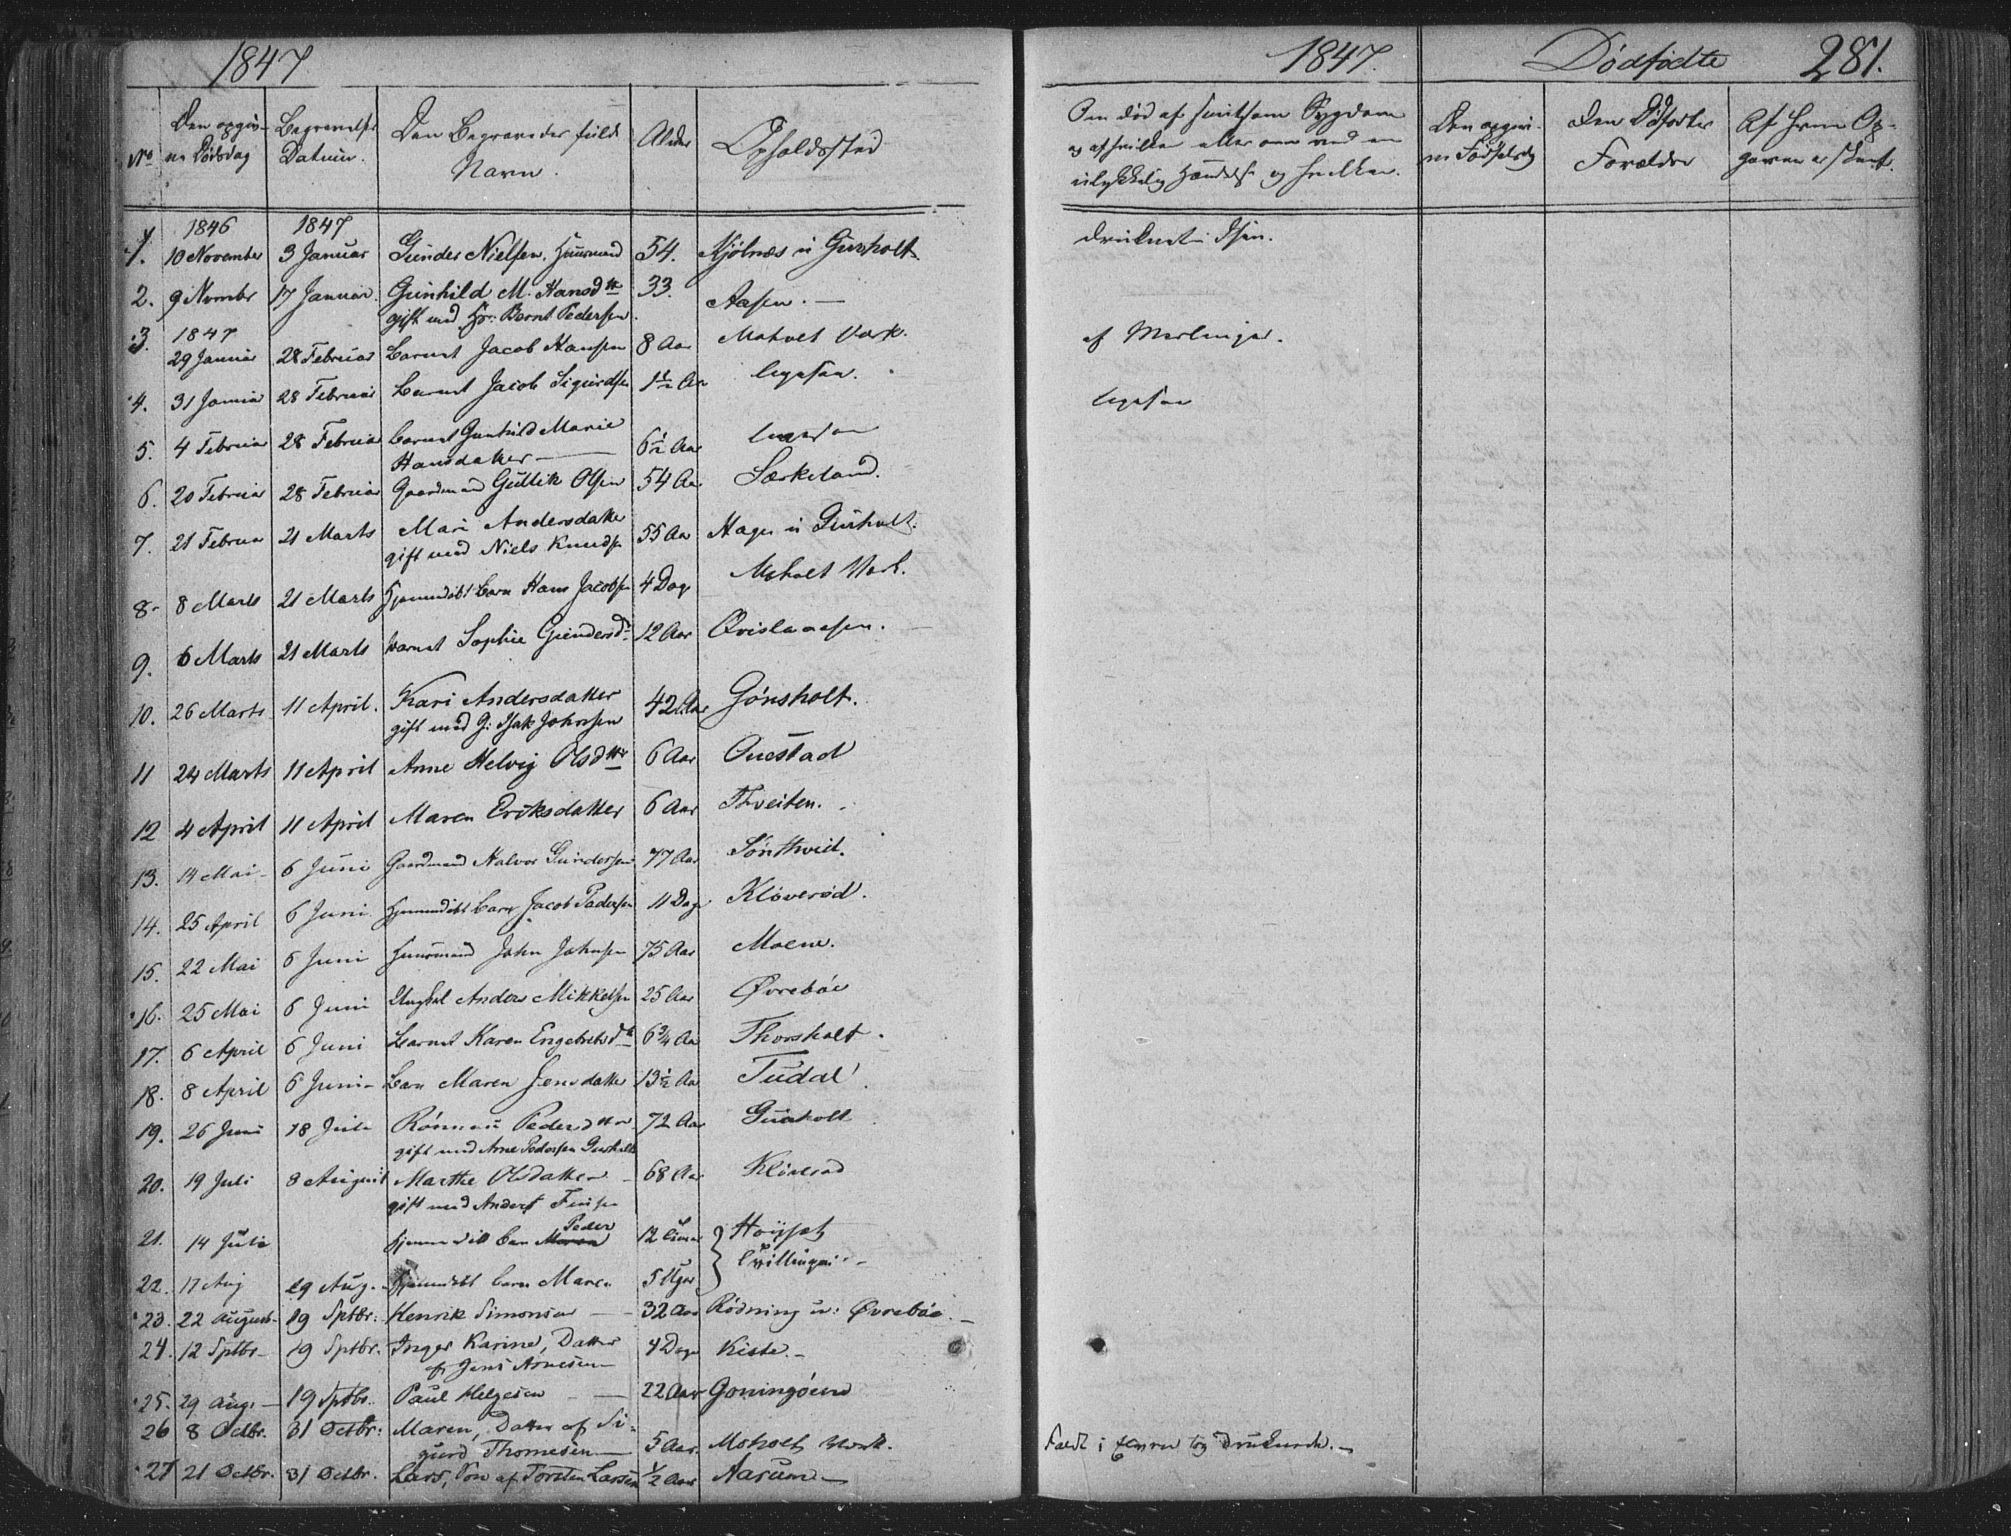 1847
No
Den opgiv-
ne Dødsdag
Begravelses
Datum.
Den Begravedes fulde
Navn.
Alder
Opholdssted
1846 1847
1. 10 November 3 Januar Gunder Nielsen, Huusmand 54. Kjölnæs u Gursholt
2. 9 Novmbr 17 Januar. Gunhild M. Hansdttr 33. Aasen. —
gift med Hr: Bernt Pedersen.
1847
3. 29 Januar 28 Februar Barnet Jacob Hansen 8 Aar Moholt Værk.
4. 31 Januar 28 Februar Barnet Jacob Sigurdsen 1½ Aar ligesaa.
5. 4 Februar 28 Februar Barnet Gunhild Marie 6½ Aar ligesaa
Hansdatter —
6. 20 Februar 28 Februar Gaardmand Gullik Olsen 54 Aar Særkeland.
7. 21 Februar 21 Marts Mari Andersdatter 55 Aar Hagen u Gursholt.
gift med Niels Knudsen
8. 8 Marts 21 Marts Hjemmedøbt Barn Hans Jacobsen 4 Dage Moholt Værk.
9. 6 Marts 21 Marts Barnet Sophie Gundersd. 12 Aar Qvislaasen.
10. 26 Marts 11 April. Kari Andersdatter 42 Aar Gønsholt.
gift med G: Isak Johnsen
11 24 Marts 11 April Anne Helvig Olsdttr 6 Aar Ouestad
12 4 April 11 April Maren Eriksdatter 6 Aar Thveiten.
13. 14 Mai 6 Juni Gaardmand Halvor Gundersen 77 Aar Sønthvid.
14. 25 April 6 Juni Hjemmedøbt Barn Jacob Pedersen 11 Dage Kløverød.
15. 22 Mai 6 Juni Huusmand John Johnsen 75 Aar Moene.
16. 25 Mai 6 Juni Ungkal Anders Mikkelsen 25 Aar Øvrebøe
17. 6 April 6 Juni Barnet Karen Engebretsd. 6¾ Aar Thorsholt.
18. 8 April 6 Juni Barn Maren Jensdatter 13½ Aar Tudal
19. 26 Juni 18 Juli Rønnau Pedersdtter 72 Aar Gursholt
gift med Arne Pedersen Gursholt
20. 19 Juli 8 August Marthe Olsdatter 68 Aar Kløverød
gift med Anders
21. 14 Juli Hjemmedøbt Barn Maren Peder 12 Timer Høyset
Tvillinger.
22. 17 Aug 29 Aug. Hjemmedøbt barn Maren 5 Uger
23. 22 August 19 Sptbr: Henrik Simonsen — 32 Aar Rødning u: Øvrebøe. —
24. 12 Sptbr. 19 Sptbr. Inger Karine, Datter 4 Dage Kiste. —
af Jens Arnesen —
25. 29 Aug. 19 Sptbr. Paul Helgesen — 22 Aar Goningøen
26 8 Octbr. 31 Octbr: Maren, Datter af Si-
gurd Thomesen — 5 Aar. Moholt Værk.
27 21 Octbr. 31 Octbr. Lars, Søn af Torsten Larsen ½ Aar Aarum —
1847. Dødfødte 281.
Om død af smitsom Sygdom
og af hvilken eller om ved en
ulykkelig Hændelse og hvilken.
Den opgiv-
ne Fødselsdag
Den Dødfødtes
Forældre
Af hvem Op-
gaven er skeet.
druknet i Isen.
af Meslinger.
ligesaa
Faldt i Elven og druknede. —